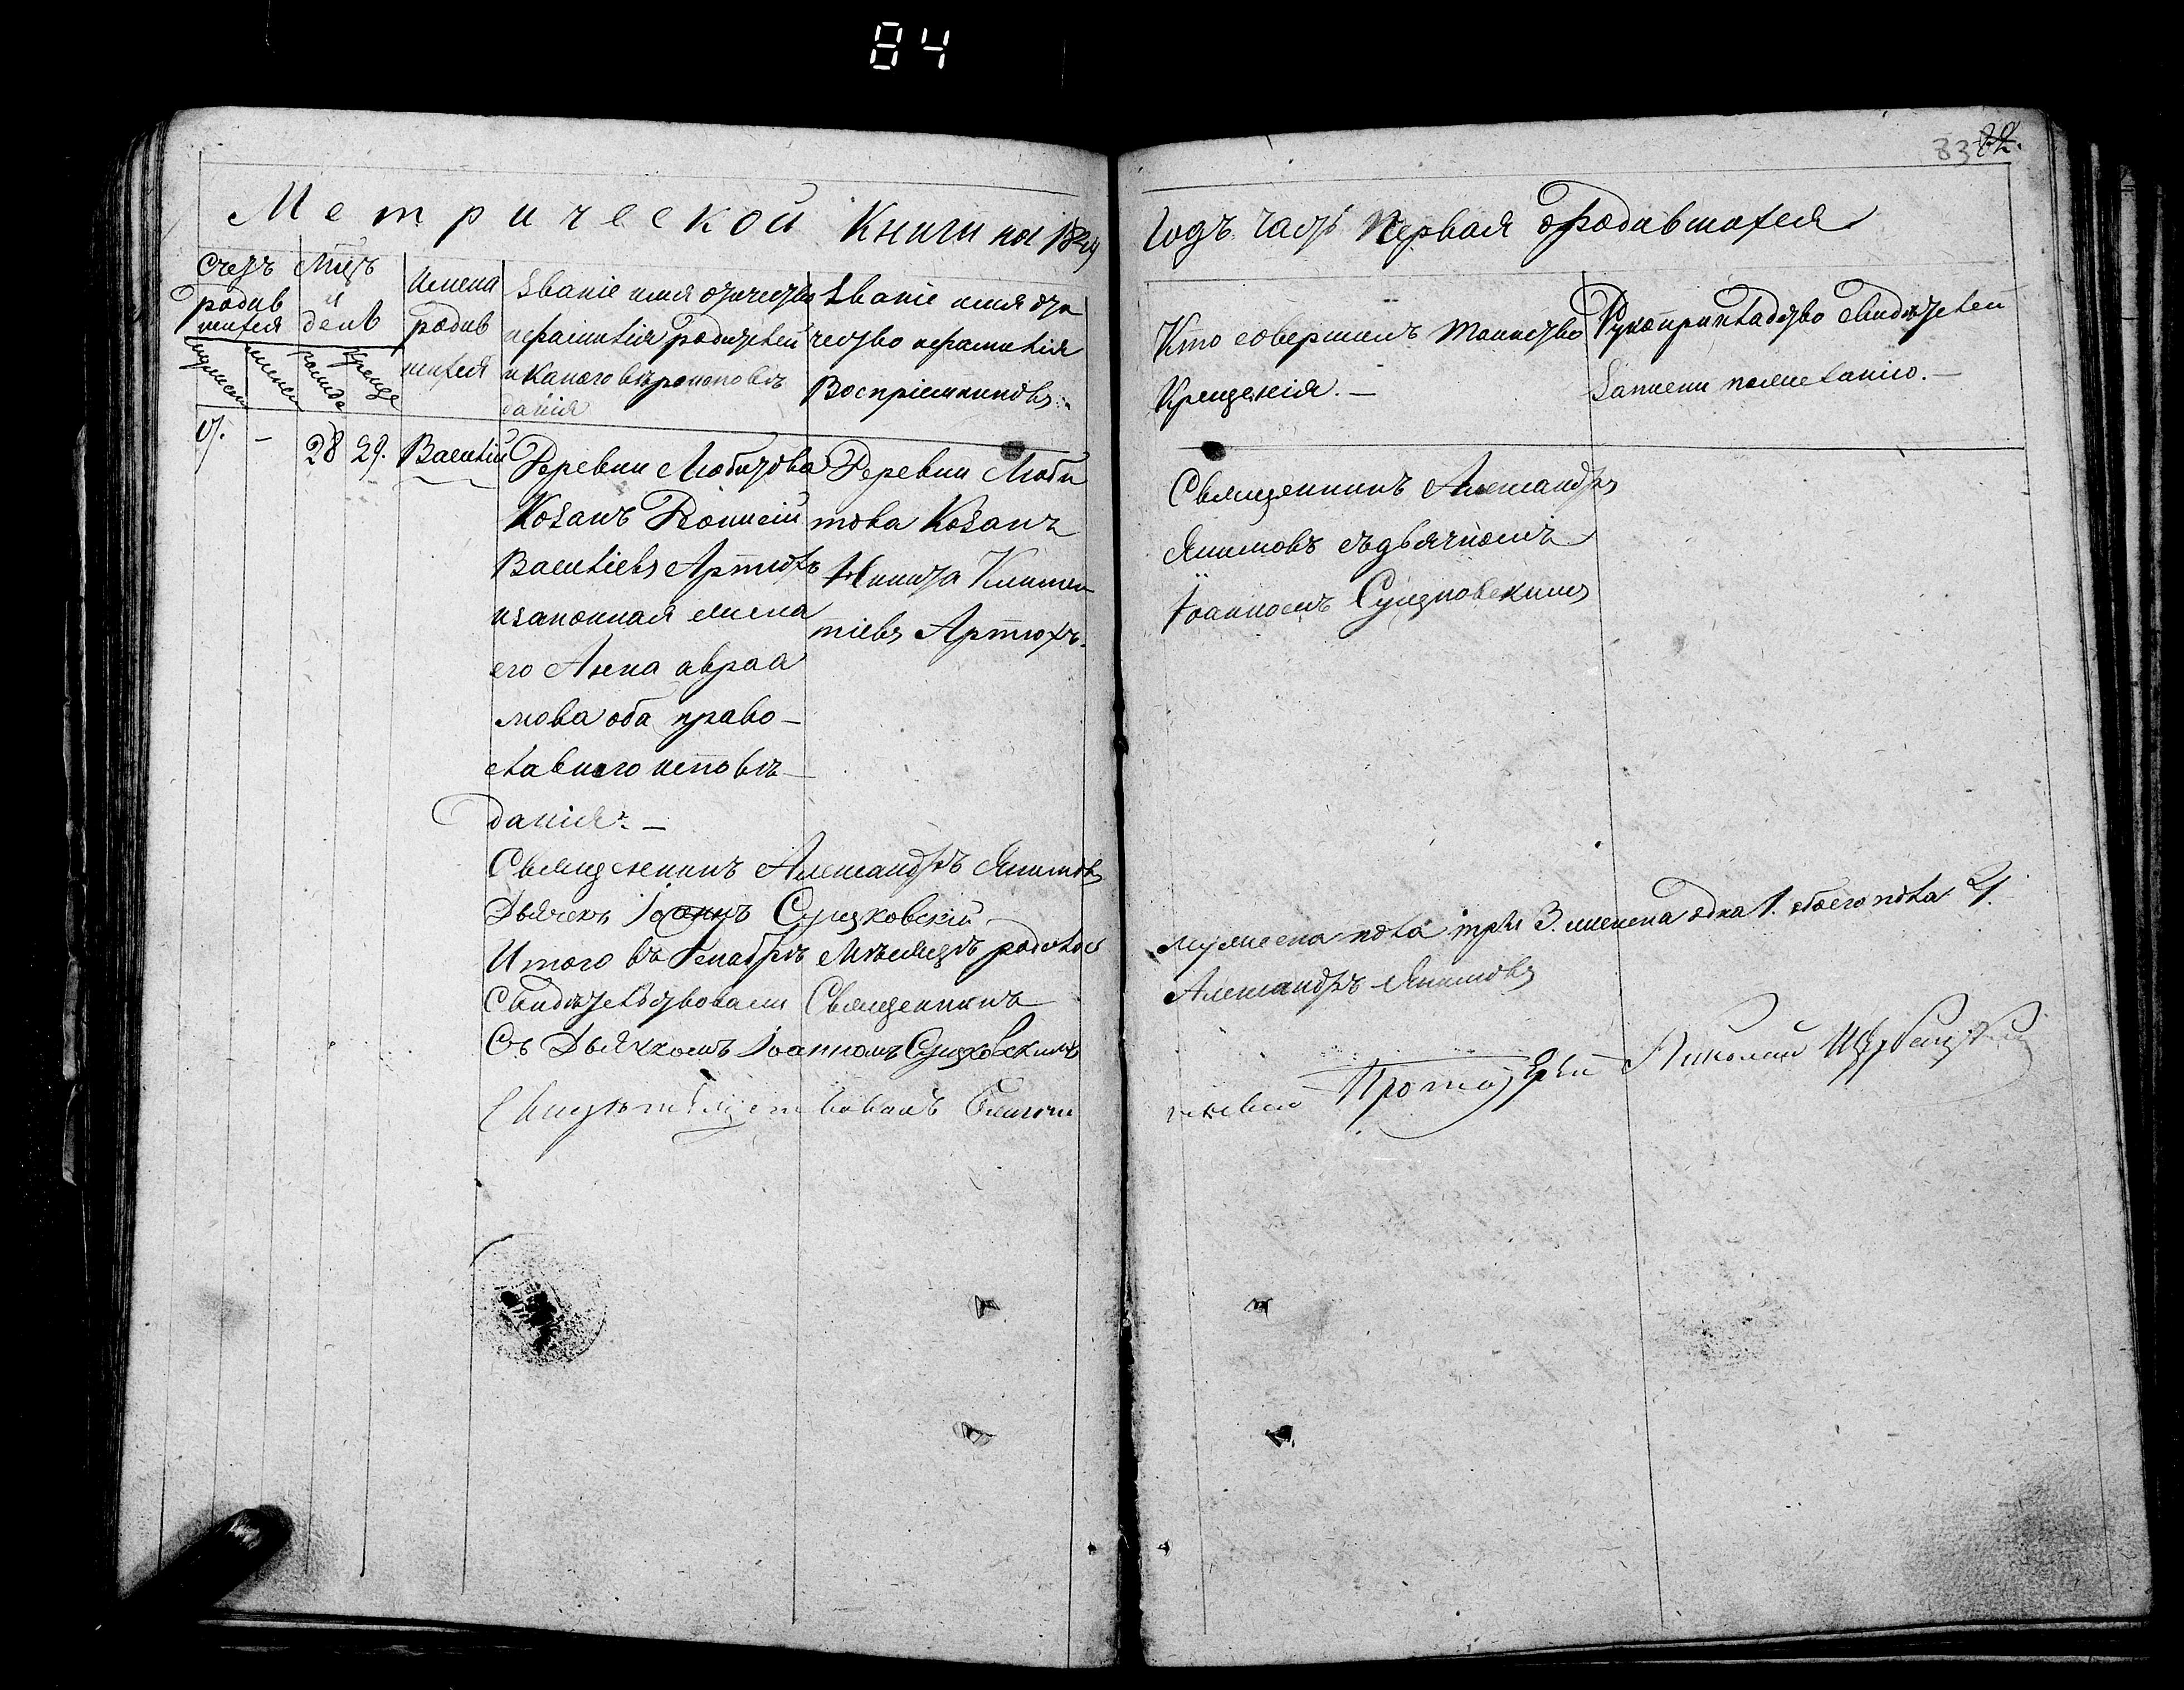 84
83 82.
Метрической Книги на 18
годъ часть Первая о родившихся
Счетъ родившихся
мужеска
женска
Мцъ и день
рожде
креще
Имена родившихся
Званіе имя отечество
и фамилія родителей
и какого вѣроисповѣ
данія
Званіе имя оте
чество и фамилія
Воспріемниковъ.
Кто совершилъ таинство
Крещенія. —
Рукоприкладство свидѣтелей
Записи по желанію. —
— 28 29. Василій
Деревни Любитова
Козакъ
Василіевъ Артюхъ
и законная жена
его Анна авраа
мова оба право–
славного исповѣ–
данія. —
Деревни Люби
това Козакъ
Никита Климен
тіевъ Артюхъ.
Священникъ Александръ
Якимовъ съ дьячкомъ
Іоанномъ Сущковскимъ
Священникъ Александръ Якимовъ
Дьячекъ Іоаннъ Сущковскій
Итого въ Генварѣ Мѣсяцѣ родилось мужеска пола три 3. женска одна 1. обоего пола 4.
Свидѣтельствовали Священникъ Александръ Якимовъ
Съ Дьячкомъ Іоанномъ Сущковскимъ
Свидѣтельствовалъ Протоіерей Николай